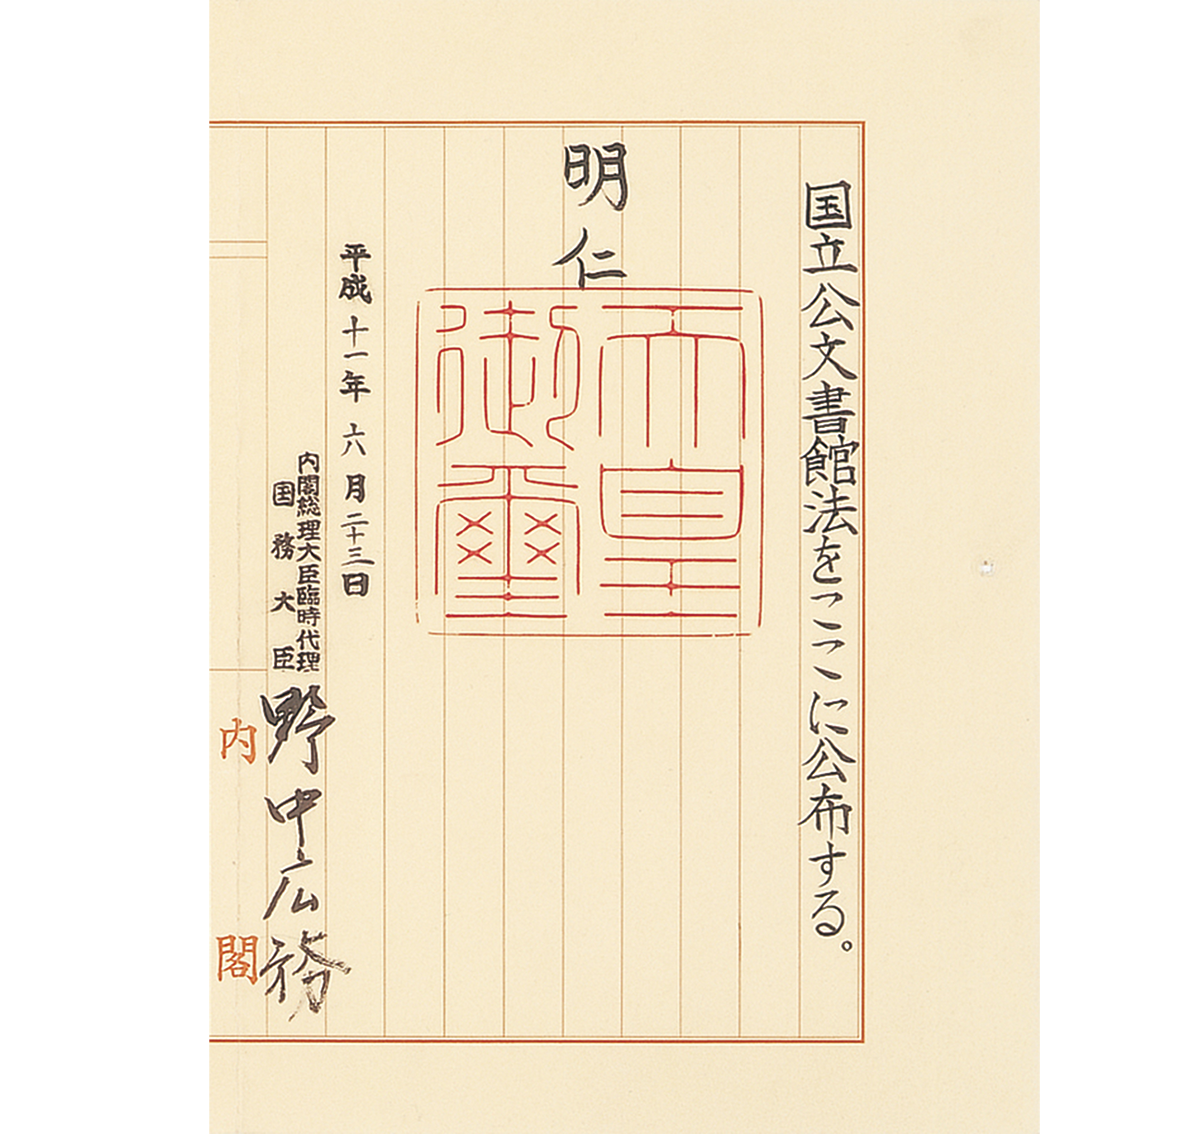 国立公文書館法をここに公布する。
明仁
天皇
御璽
平成十一年六月二十三日
内閣総理大臣臨時代理
国務大臣
野中広務
内閣